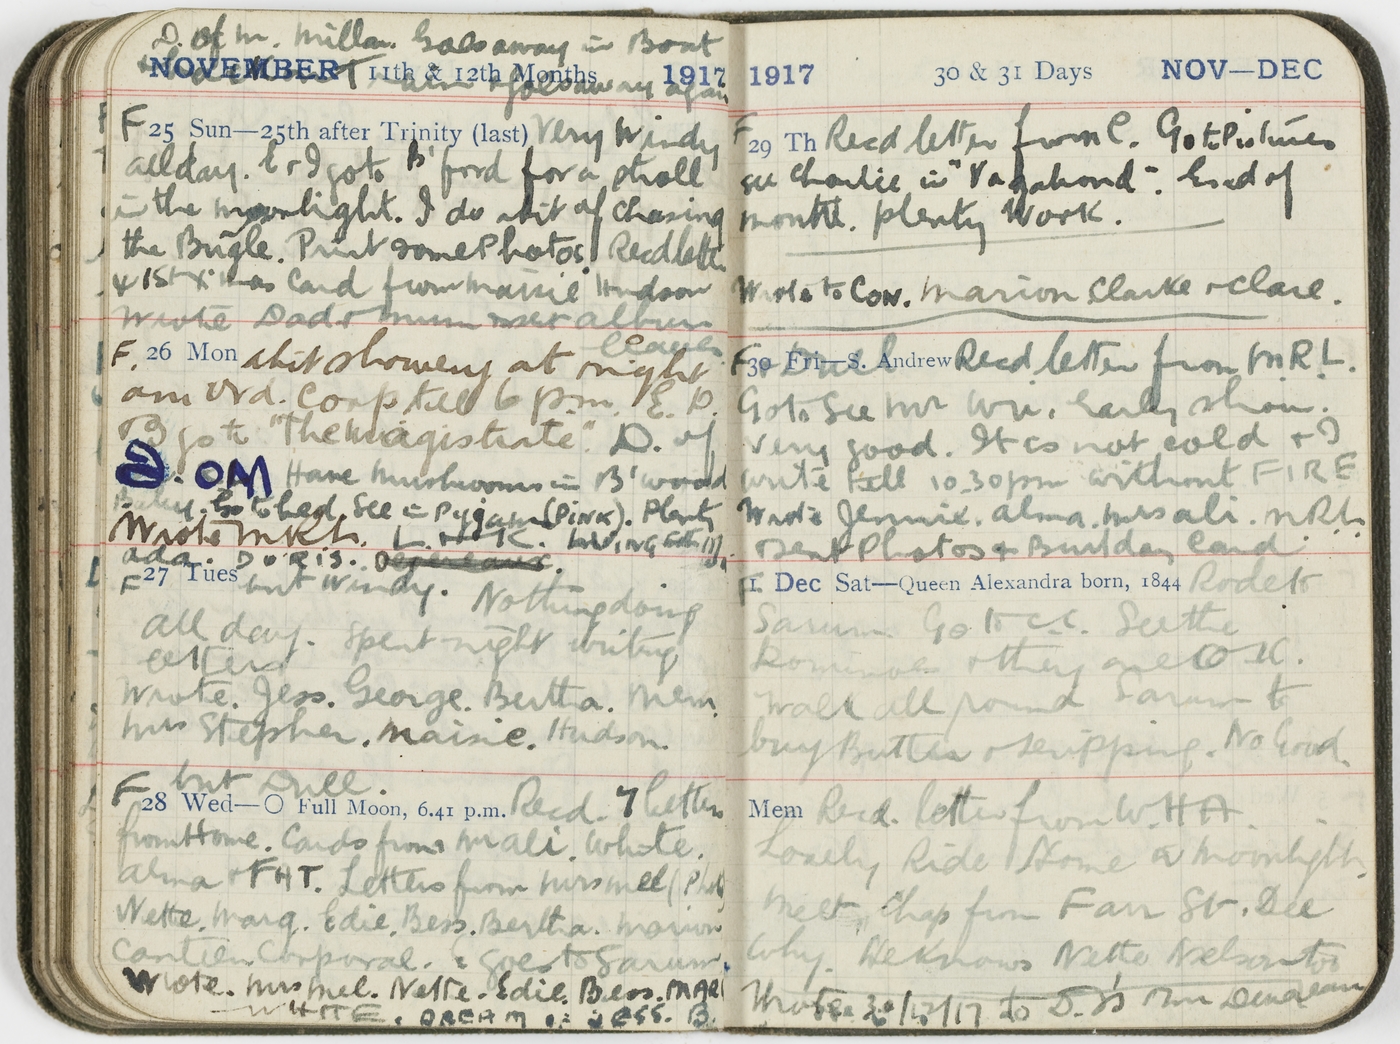 D. of M. Millan. Goes away in Boat
NOVEMBER 11th & 12th Months 1917
goes away again
F 25 Sun—25th after Trinity (last) Very Windy
all day. E & I go to B'ford for a stroll
in the moonlight. I do a bit of chasing
the Bugle. Print some Photos. Recd letter
& 1st X mas Card from Maisie Hudson
Wrote Dad & Mum & sent album
leaves
F. 26 Mon a bit showery at night
am Ord. Corp till 6 pm. E. D.
& I go to "The Magistrate". D. of
D. OM Have Mushrooms in B'wood
Go to bed. See in Pyjam (PINK). Plenty
Wrote MRH. L. & K.
ada. DORIS.
F 27 Tues but Windy. Nothing doing
all day. Spent night writing
letters
Wrote. Jess. George. Bertha. Mem.
Mrs Stephen. Maisie. Hudson.
F but Dull.
28 Wed—O Full Moon, 6.41 p.m. Recd. 7 letters
from Home. Cards from Mr ali. White.
alma & FHT. Letters from Mrs Mel (Photo
Nette. Marg. Edie. Bess. Bertha. Marion
Canteen Corporal. E goes to Sarum.
Wrote. Mrs Mel. Nette. Edie. Bess.
WHITE. DREAM JESS. B.
1917 30 & 31 Days NOV—DEC
F 29 Th Recd letter from C. Go to Pictures
see Charlie in "Vagabond". End of
month. plenty Work.
Wrote to Con. Marion Clarke & Clare.
F 30 Fri—S. Andrew Recd letter from MRL.
Go to See Mr Wu. Early show.
Very good. It is not cold & I
write till 10.30pm without FIRE
Wrote Jennie. alma. Mrs ali. MRL.
& sent Photos & Birthday Card
F 1 Dec Sat—Queen Alexandra born, 1844 Rode to
Sarum. Go to C.C. See the
Dominoes & they are O.K.
Walk all round Sarum to
buy Butter & dripping. No Good.
Mem Recd. letter from W.H.A.
Lovely Ride Home in Moonlight.
Meet Chap from Farr St. Dee
Why. He Knows Nette Nelson too
Wrote 30/12/17 to D.